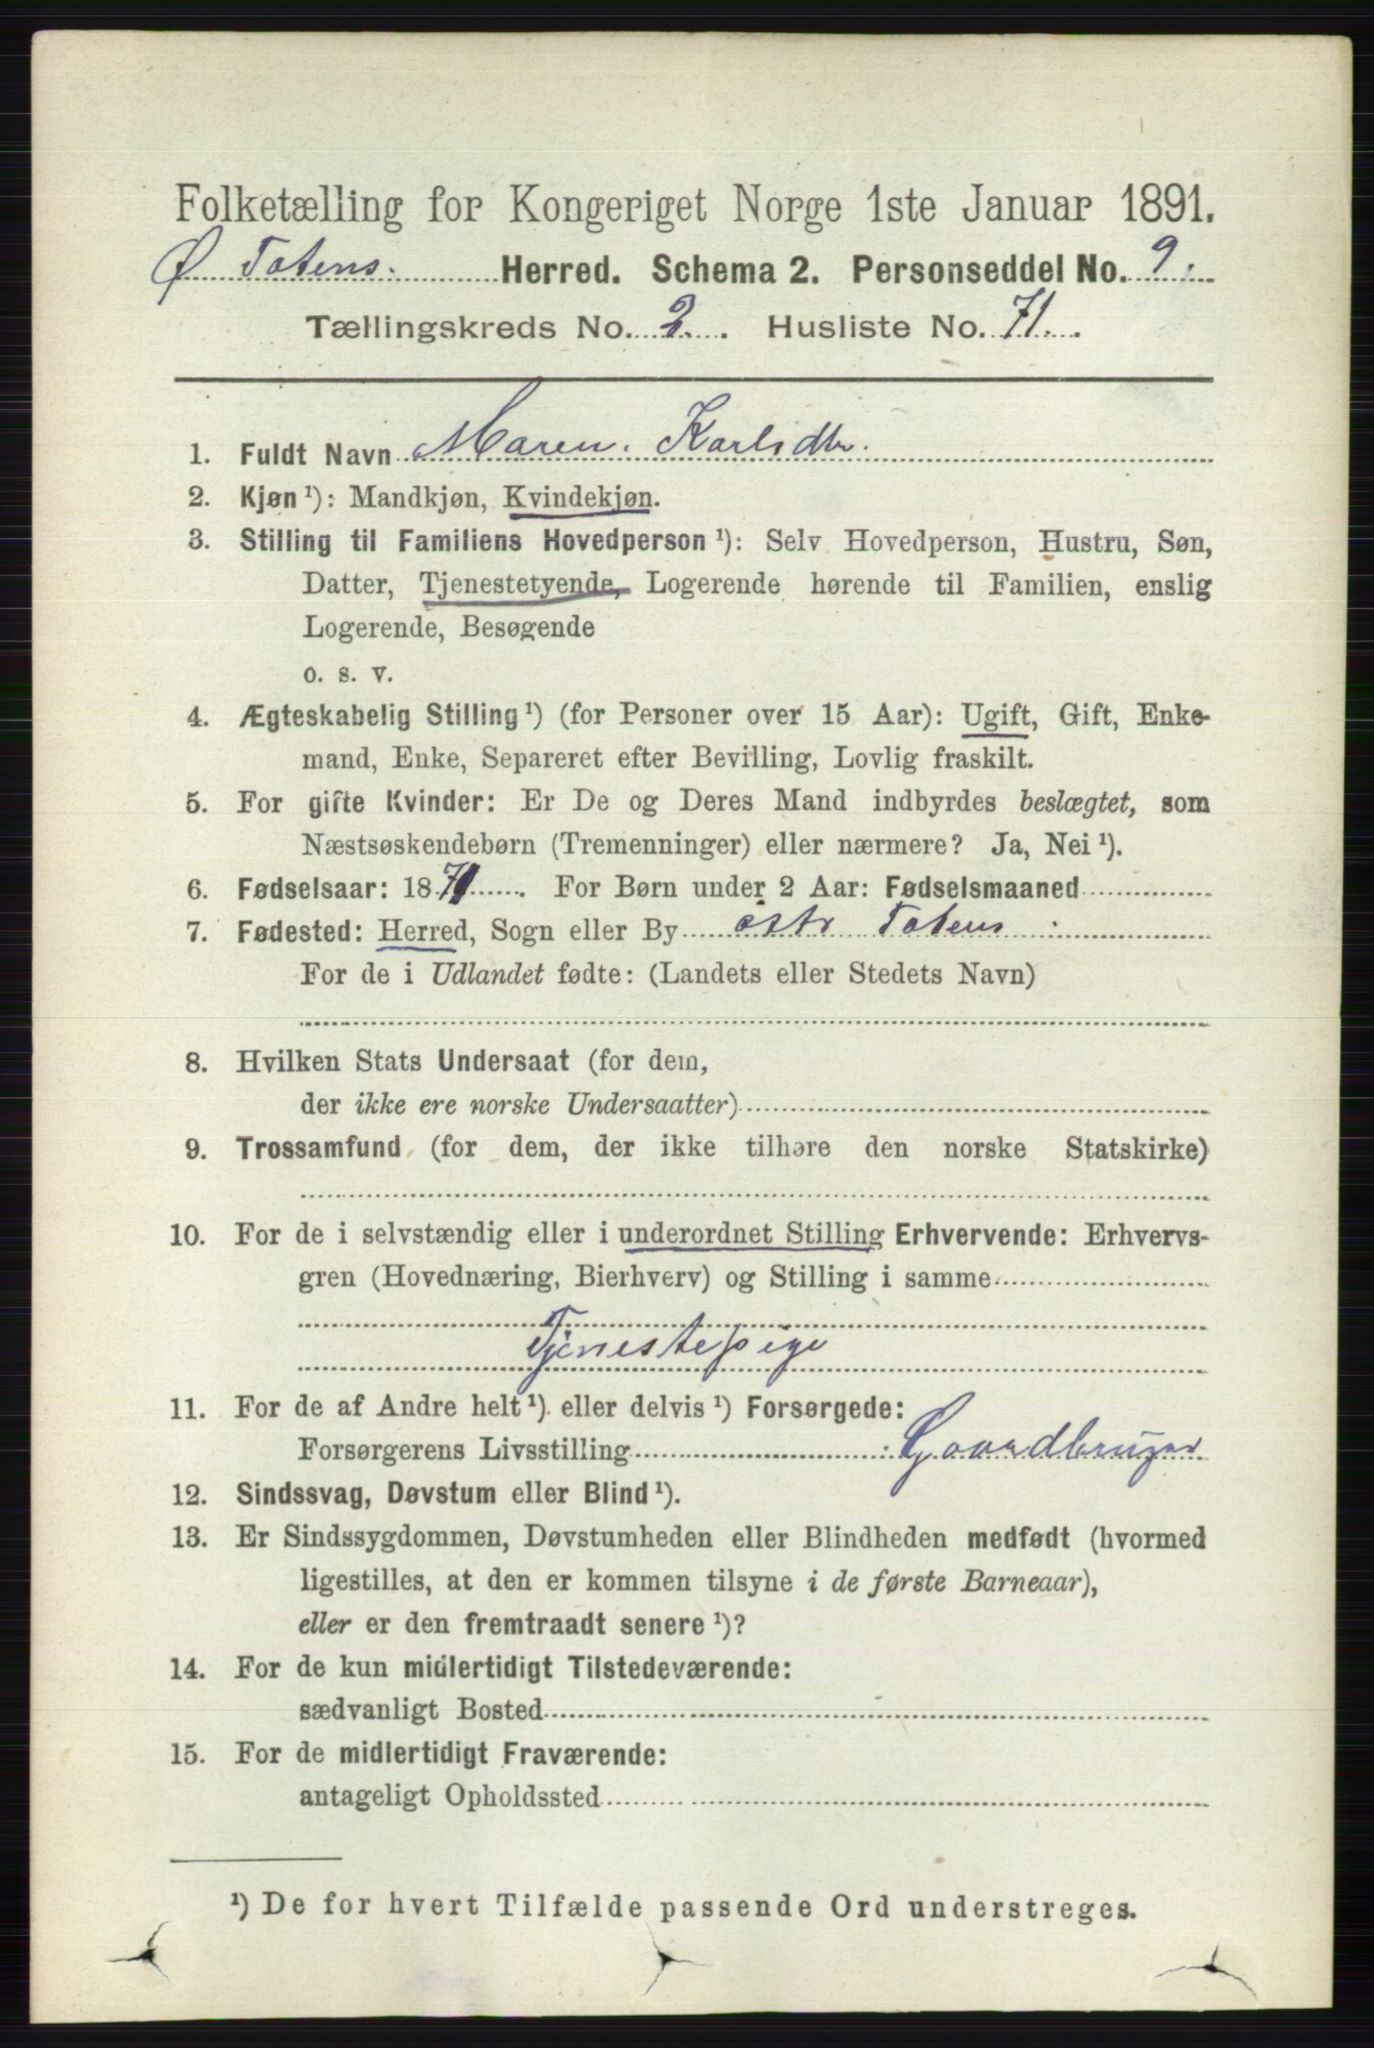 Folketælling for Kongeriget Norge 1ste Januar 1891.
Ø Totens. Herred. Schema 2. Personseddel No. 9.
Tællingskreds No. 2. Husliste No. 71.
1. Fuldt Navn Maren. Karlsdtr.
2. Kjøn ¹): Mandkjøn, Kvindekjøn.
3. Stilling til Familiens Hovedperson ¹): Selv Hovedperson, Hustru, Søn,
Datter, Tjenestetyende, Logerende hørende til Familien, enslig
Logerende, Besøgende
o. s. v.
4. Ægteskabelig Stilling ¹) (for Personer over 15 Aar): Ugift, Gift, Enke-
mand, Enke, Separeret efter Bevilling, Lovlig fraskilt.
5. For gifte Kvinder: Er De og Deres Mand indbyrdes beslægtet, som
Næstsøskendebørn (Tremenninger) eller nærmere? Ja, Nei ¹).
6. Fødselsaar: 1871. For Børn under 2 Aar: Fødselsmaaned
7. Fødested: Herred, Sogn eller By østr Totens
For de i Udlandet fødte: (Landets eller Stedets Navn)
8. Hvilken Stats Undersaat (for dem,
der ikke ere norske Undersaatter)
9. Trossamfund (for dem, der ikke tilhøre den norske Statskirke)
10. For de i selvstændig eller i underordnet Stilling Erhvervende: Erhvervs-
gren (Hovednæring, Bierhverv) og Stilling i samme
Tjenestepige
11. For de af Andre helt ¹) eller delvis ¹) Forsørgede:
Forsørgerens Livsstilling Gaardbruger
12. Sindssvag, Døvstum eller Blind ¹).
13. Er Sindssygdommen, Døvstumheden eller Blindheden medfødt (hvormed
ligestilles, at den er kommen tilsyne i de første Barneaar),
eller er den fremtraadt senere ¹)?
14. For de kun midlertidigt Tilstedeværende:
sædvanligt Bosted
15. For de midlertidigt Fraværende:
antageligt Opholdssted
¹) De for hvert Tilfælde passende Ord understreges.